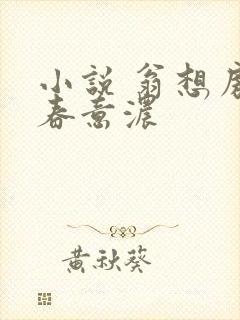 小說 翁想
春意濃
黃秋葵